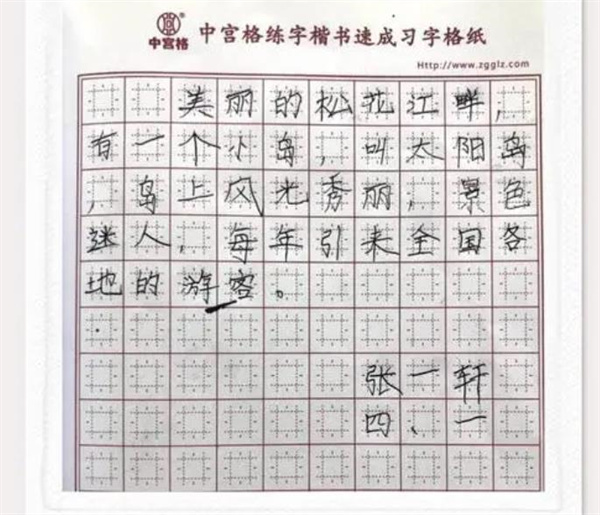 中宫格 中宫格练字楷书速成习字格纸
Http://www.zgglz.com
美丽的松花江畔，
有一个小岛，叫太阳岛
，岛上风光秀丽，景色
迷人，每年引来全国各
地的游客。
张一轩
四、一